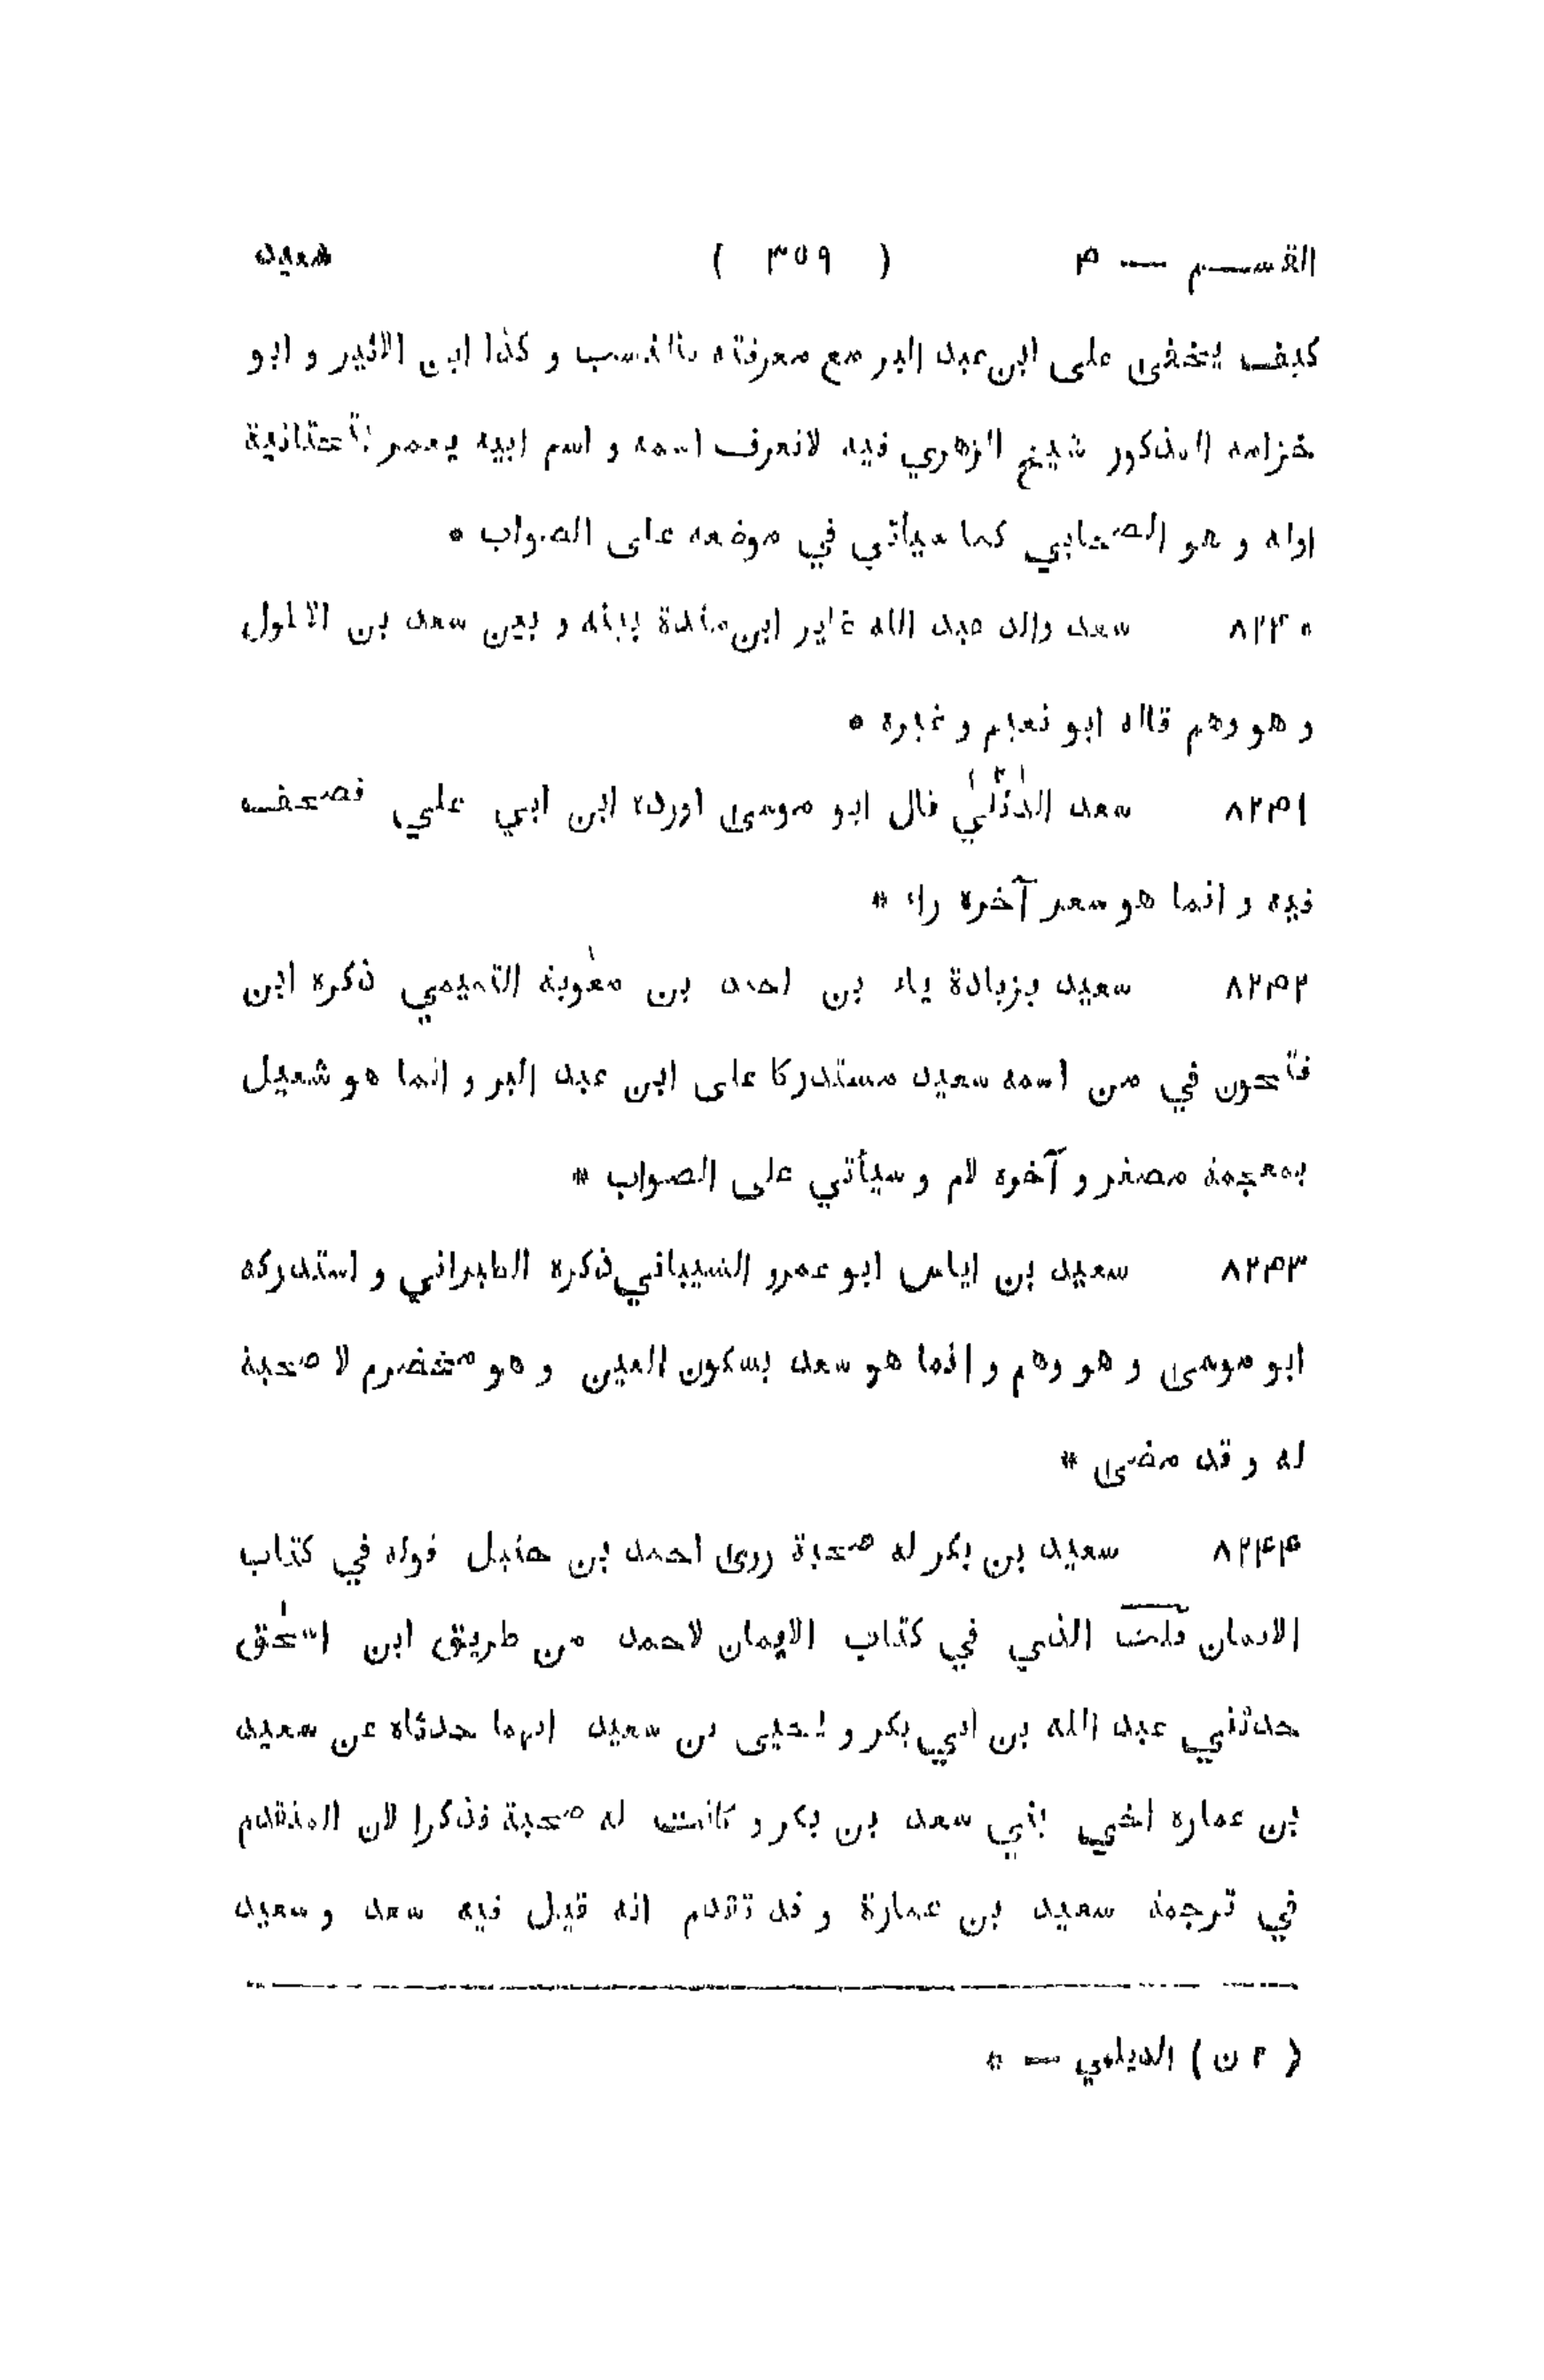 القسم — ۴ ( ۳۵۹ ) سعيد
كيف يخفى على ابن عبد البر مع معرفته بالنسب و كذا ابن الاثير و ابو
خزامه المذكور شيخ الزهري فيه لانعرف اسمه و اسم ابيه يعمر بتحتانية
اوله و هو الصحابي كما سيأتي في موضعه على الصواب *
۸۲۴۰ سعد والد عبد الله غاير ابن مندة بينه و بين سعد بن الاطول
و هو وهم قاله ابو نعيم و غيره *
۸۲۴۱ سعد الدئلي قال ابو موسى اورده ابن ابي علي فصحف
فيه و انما هو سعر آخره راء *
۸۲۴۲ سعيد بزيادة ياء بن احمد بن معوية التميمي ذكره ابن
فتحون في من اسمه سعيد مستدركا على ابن عبد البر و انما هو شعيل
بمعجمة مصغر و آخره لام و سيأتي على الصواب *
۸۲۴۳ سعيد بن اياس ابو عمرو الشيباني ذكره الطبراني و استدركه
ابو موسى و هو وهم و انما هو سعد بسكون العين و هو مخضرم لا صحبة
له و قد مضى *
۸۲۴۴ سعيد بن بكر له صحبة روى احمد بن حنبل قوله في كتاب
الايمان قلت الذي في كتاب الايمان لاحمد من طريق ابن اسحق
حدثني عبد الله بن ابي بكر و يحيى بن سعيد انهما حدثاه عن سعيد
بن عماره اخي بني سعد بن بكر و كانت له صحبة فذكرا لان المتقدم
في ترجمة سعيد بن عمارة و قد تقدم انه قيل فيه سعد و سعيد
( ۲ ن ) الديلمي — *